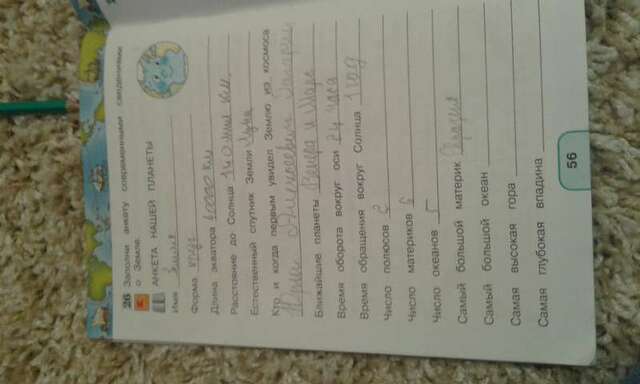 26 Заполни анкету современными сведениями
о Земле.
АНКЕТА НАШЕЙ ПЛАНЕТЫ
Имя Земля
Форма шар
Длина экватора км
Расстояние до Солнца 150 млн км.
Естественный спутник Земли Луна
Кто и когда первым увидел Землю из космоса
Юрий Алексеевич Гагарин
Ближайшие планеты Венера и Марс
Время оборота вокруг оси 24 часа
Время обращения вокруг Солнца 1 год
Число полюсов 2
Число материков 6
Число океанов 5
Самый большой материк Евразия
Самый большой океан
Самая высокая гора
Самая глубокая впадина
56